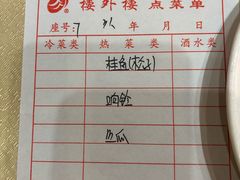 楼外楼点菜单
座号:7 年 月 日
冷菜类 热菜类 酒水类
桂鱼(松子)
响铃
丝瓜